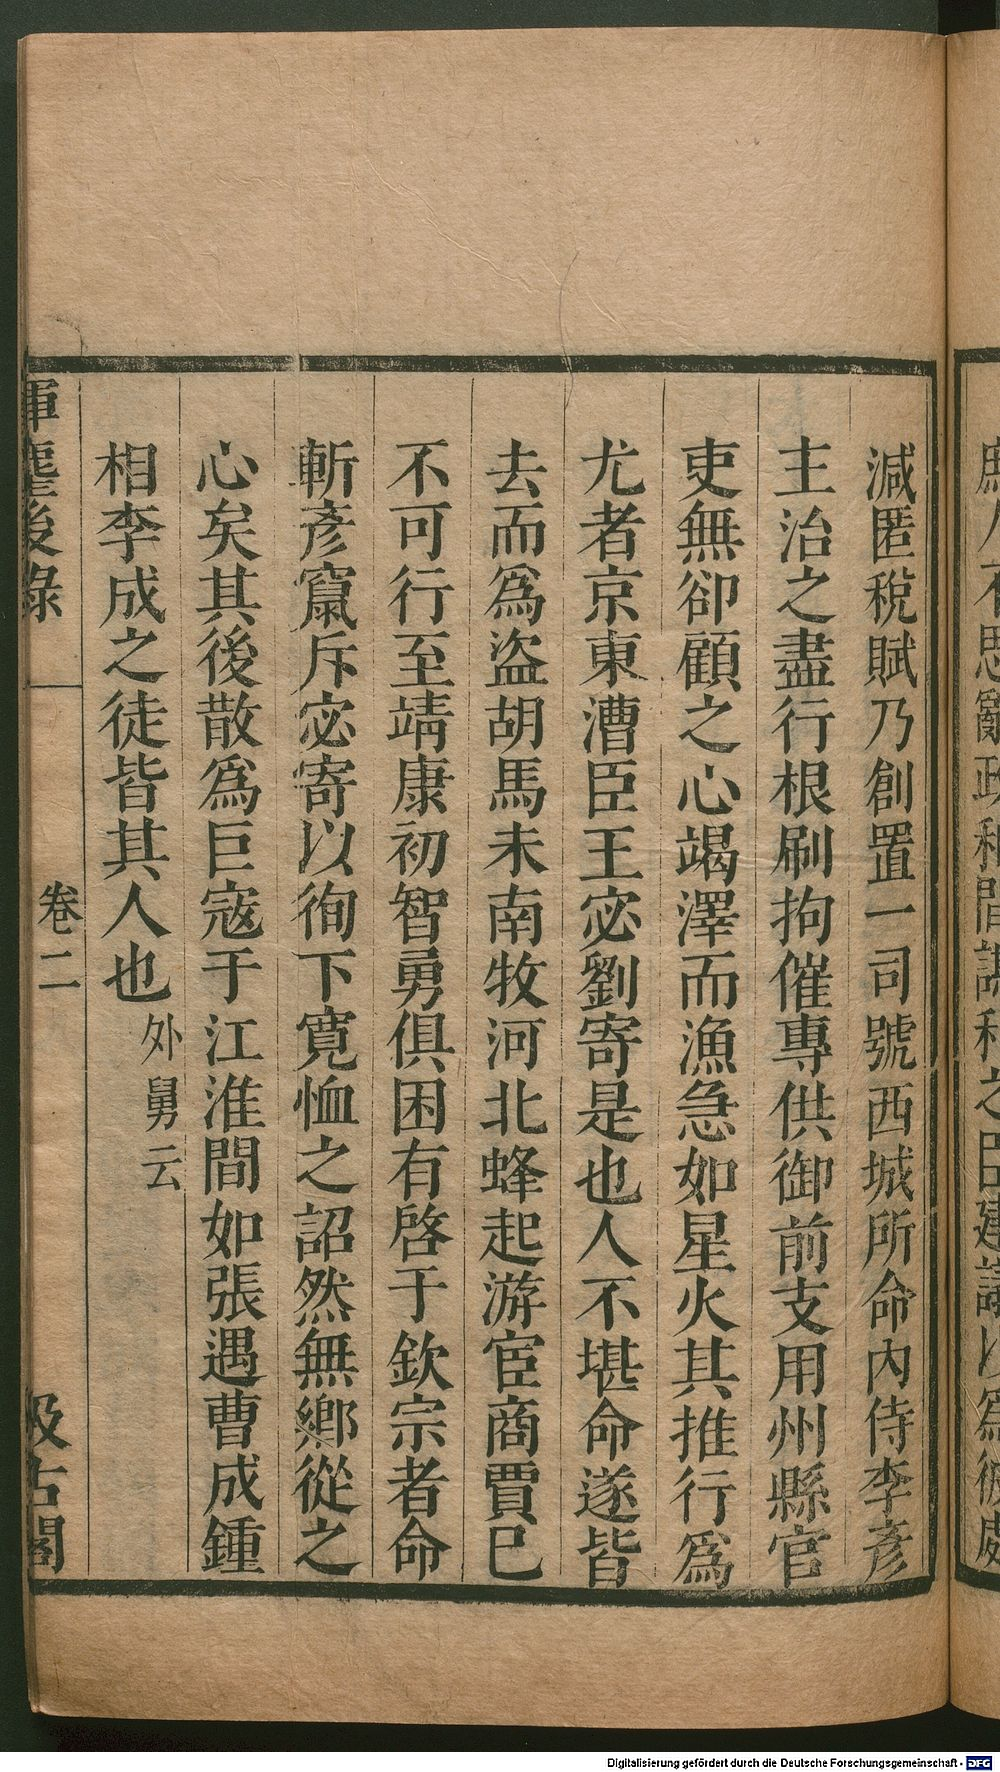 減匿稅賦乃創置一司號西城所命內侍李彥
主治之盡行根刷拘催專供御前支用州縣官
吏無卻顧之心竭澤而漁急如星火其推行爲
尤者京東漕臣王宓劉寄是也人不堪命遂皆
去而爲盜胡馬未南牧河北蜂起游宦商賈巳
不可行至靖康初智勇俱困有啓于欽宗者命
斬彥竄斥宓寄以徇下寬恤之詔然無鄉從之
心矣其後散爲巨寇于江淮間如張遇曹成鍾
相李成之徒皆其人也 外舅云
揮麈後錄 卷二 汲古閣
Digitalisierung gefördert durch die Deutsche Forschungsgemeinschaft - DFG